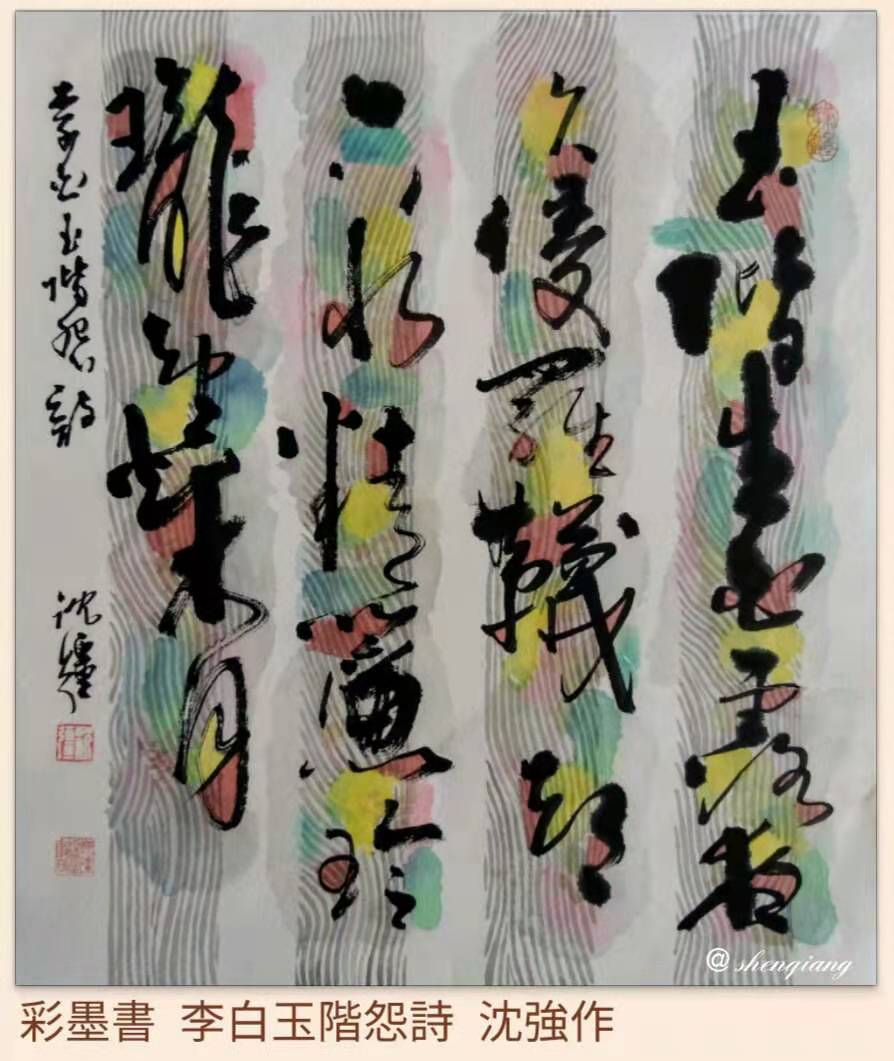 玉階生白露夜
久侵羅韈却
下水精簾玲
瓏望秋月
李白玉階怨詩
沈彊
@shenqiang
彩墨書 李白玉階怨詩 沈強作